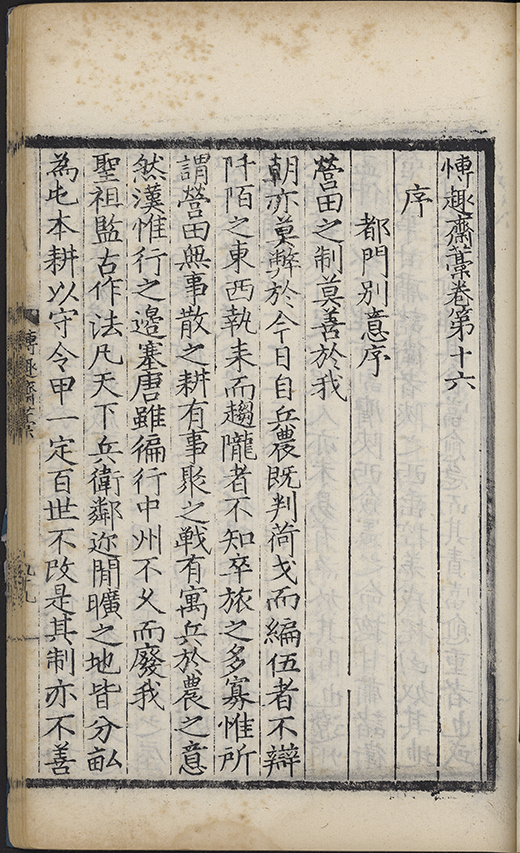 博趣齋藁卷第十六
序
都門别意序
營田之制莫善於我
朝亦莫弊於今日自兵農既判荷戈而編伍者不辯
阡陌之東西執耒而趨隴者不知卒旅之多寡惟所
謂營田無事散之耕有事聚之戰有寓兵於農之意
然漢惟行之邊塞唐雖徧行中州不乆而廢我
聖祖監古作法凡天下兵衛鄰近閒曠之地皆分畝
為屯本耕以守令甲一定百世不改是其制亦不善
博趣齋藁